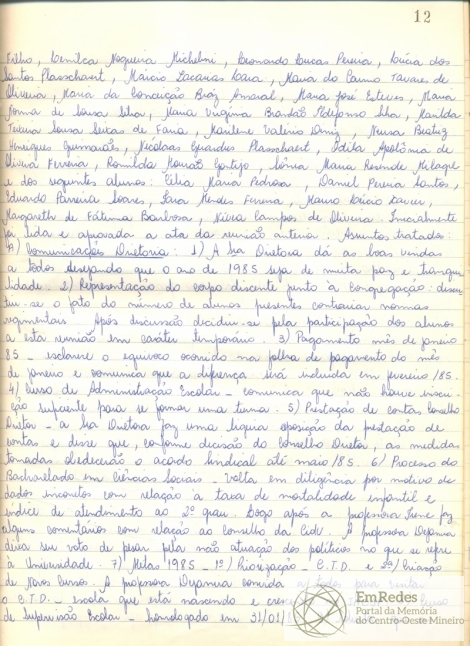 12
Filho, Denilca Nogueira Michelini, Leonardo Lucas Pereira, Lúcia dos
Santos Plasschaert, Márcio Zacarias Lara, Maria do Carmo Tavares de
Oliveira, Maria da Conceição Braz Amaral, Maria José Esteves, Maria
Norma de Sousa Silva, Maria Virgínia Brandão Ildefonso Silva, Marilda
Teresa Sousa Seixas de Faria, Marlene Valério Diniz, Neusa Beatriz
Henriques Guimarães, Nicolaas Gerardus Plasschaert, Odila Apolônia de
Oliveira Ferreira, Romilda Mourão Gontijo, Sônia Maria Resende
e dos seguintes alunos: Célia Maria Pedrosa, Daniel Pereira Santos,
Eduardo Parreira Soares, Iara Mendes Ferreira, Mauro Lúcio Xavier,
Margareth de Fátima Barbosa, Nívia Campos de Oliveira. Inicialmente
foi lida e aprovada a ata da reunião anterior. Assuntos tratados:
A) Comunicações Diretoria: 1) A Sra Diretora dá as boas vindas
a todos desejando que o ano de 1985 seja de muita paz e tranqui
lidade. 2) Representação do corpo discente junto à Congregação: discu
tiu-se o fato do número de alunos presentes contrariar normas
regimentais. Após discussão decidiu-se pela participação dos alunos
a esta reunião em caráter temporário. 3) Pagamento mês de janeiro
85 - esclarece o equívoco ocorrido na folha de pagamento do mês
de janeiro e comunica que a diferença será incluída em fevereiro/85.
4) Curso de Administração Escolar - comunica que não houve inscri-
ção suficiente para se formar uma turma. 5) Prestação de contas Conselho
Diretor - a Sra Diretora faz uma ligeira exposição da prestação de
contas e disse que, conforme decisão do Conselho Diretor, as medidas
tomadas obedecerão o acordo sindical até maio/85. 6) Processo do
Bacharelado em Ciências Sociais - volta em diligência por motivo de
dados incorretos com relação à taxa de mortalidade infantil e
índice de atendimento ao 2º grau. Logo após a professora Irene faz
alguns comentários com relação ao Conselho da Cidu. A professora Dejanira
deixa seu voto de pesar pela não atuação dos políticos no que se refere
à Universidade. 7) Metas 1985 - 1º) Priorização - C.T.D. e 2º) Criação
de Novos Cursos. A professora Dejanira convida a todos para
o C.T.D. - escola que está nascendo e Curso
de Supervisão Escolar - homologado em 31/01/8
EmRedes
Portal da Memória
do Centro-Oeste Mineiro